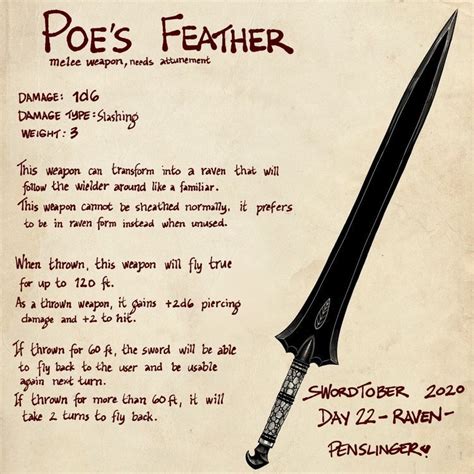 POE'S FEATHER
melee weapon, needs attunement
DAMAGE: 1d6
DAMAGE TYPE: Slashing
WEIGHT: 3
This weapon can transform into a raven that will
follow the wielder around like a familiar.
This weapon cannot be sheathed normally, it prefers
to be in raven form instead when unused.
When thrown, this weapon will fly true
for up to 120 ft.
As a thrown weapon, it gains +2d6 piercing
damage and +2 to hit.
If thrown for 60 ft, the sword will be able
to fly back to the user and be usable
again next turn.
If thrown for more than 60 ft, it will
take 2 turns to fly back.
SWORDTOBER 2020
DAY 22 - RAVEN -
PENSLINGER